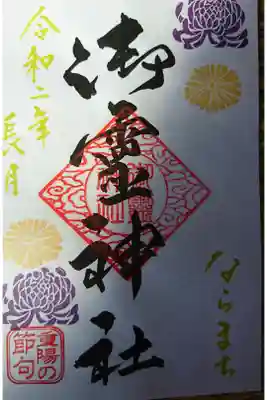 令和二年
長月
御霊神社
ならまち
重陽の
節句